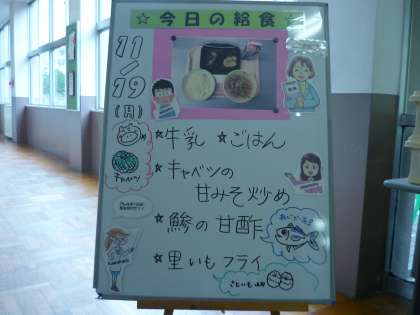 ☆今日の給食☆
11/19
(月)
★牛乳 ★ごはん
★キャベツの
甘みそ炒め
★鯵の甘酢
★里いもフライ
キャベツ